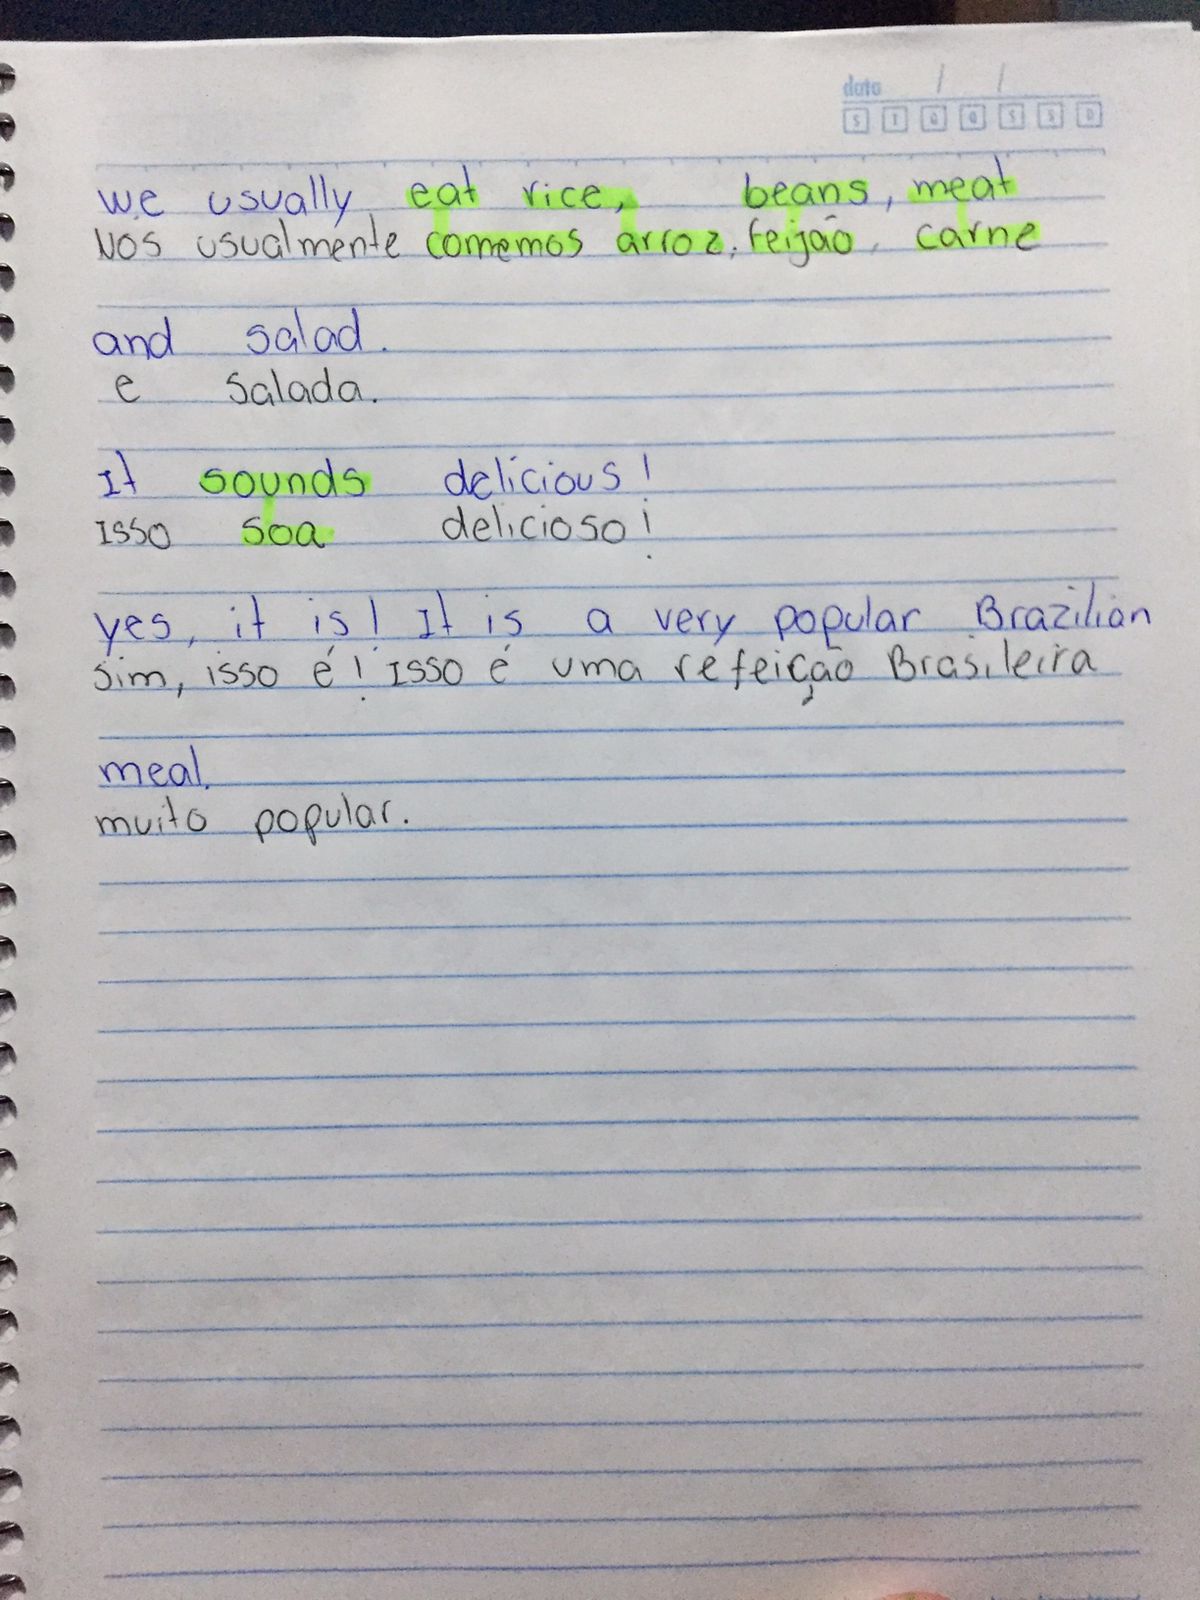 data / /
S T Q Q S S D
we usually eat rice, beans, meat
Nos usualmente comemos arroz, feijão, carne
and salad.
e salada.
It sounds delicious!
Isso soa delicioso!
yes, it is! It is a very popular Brazilian
sim, isso é! Isso é uma refeição Brasileira
meal.
muito popular.